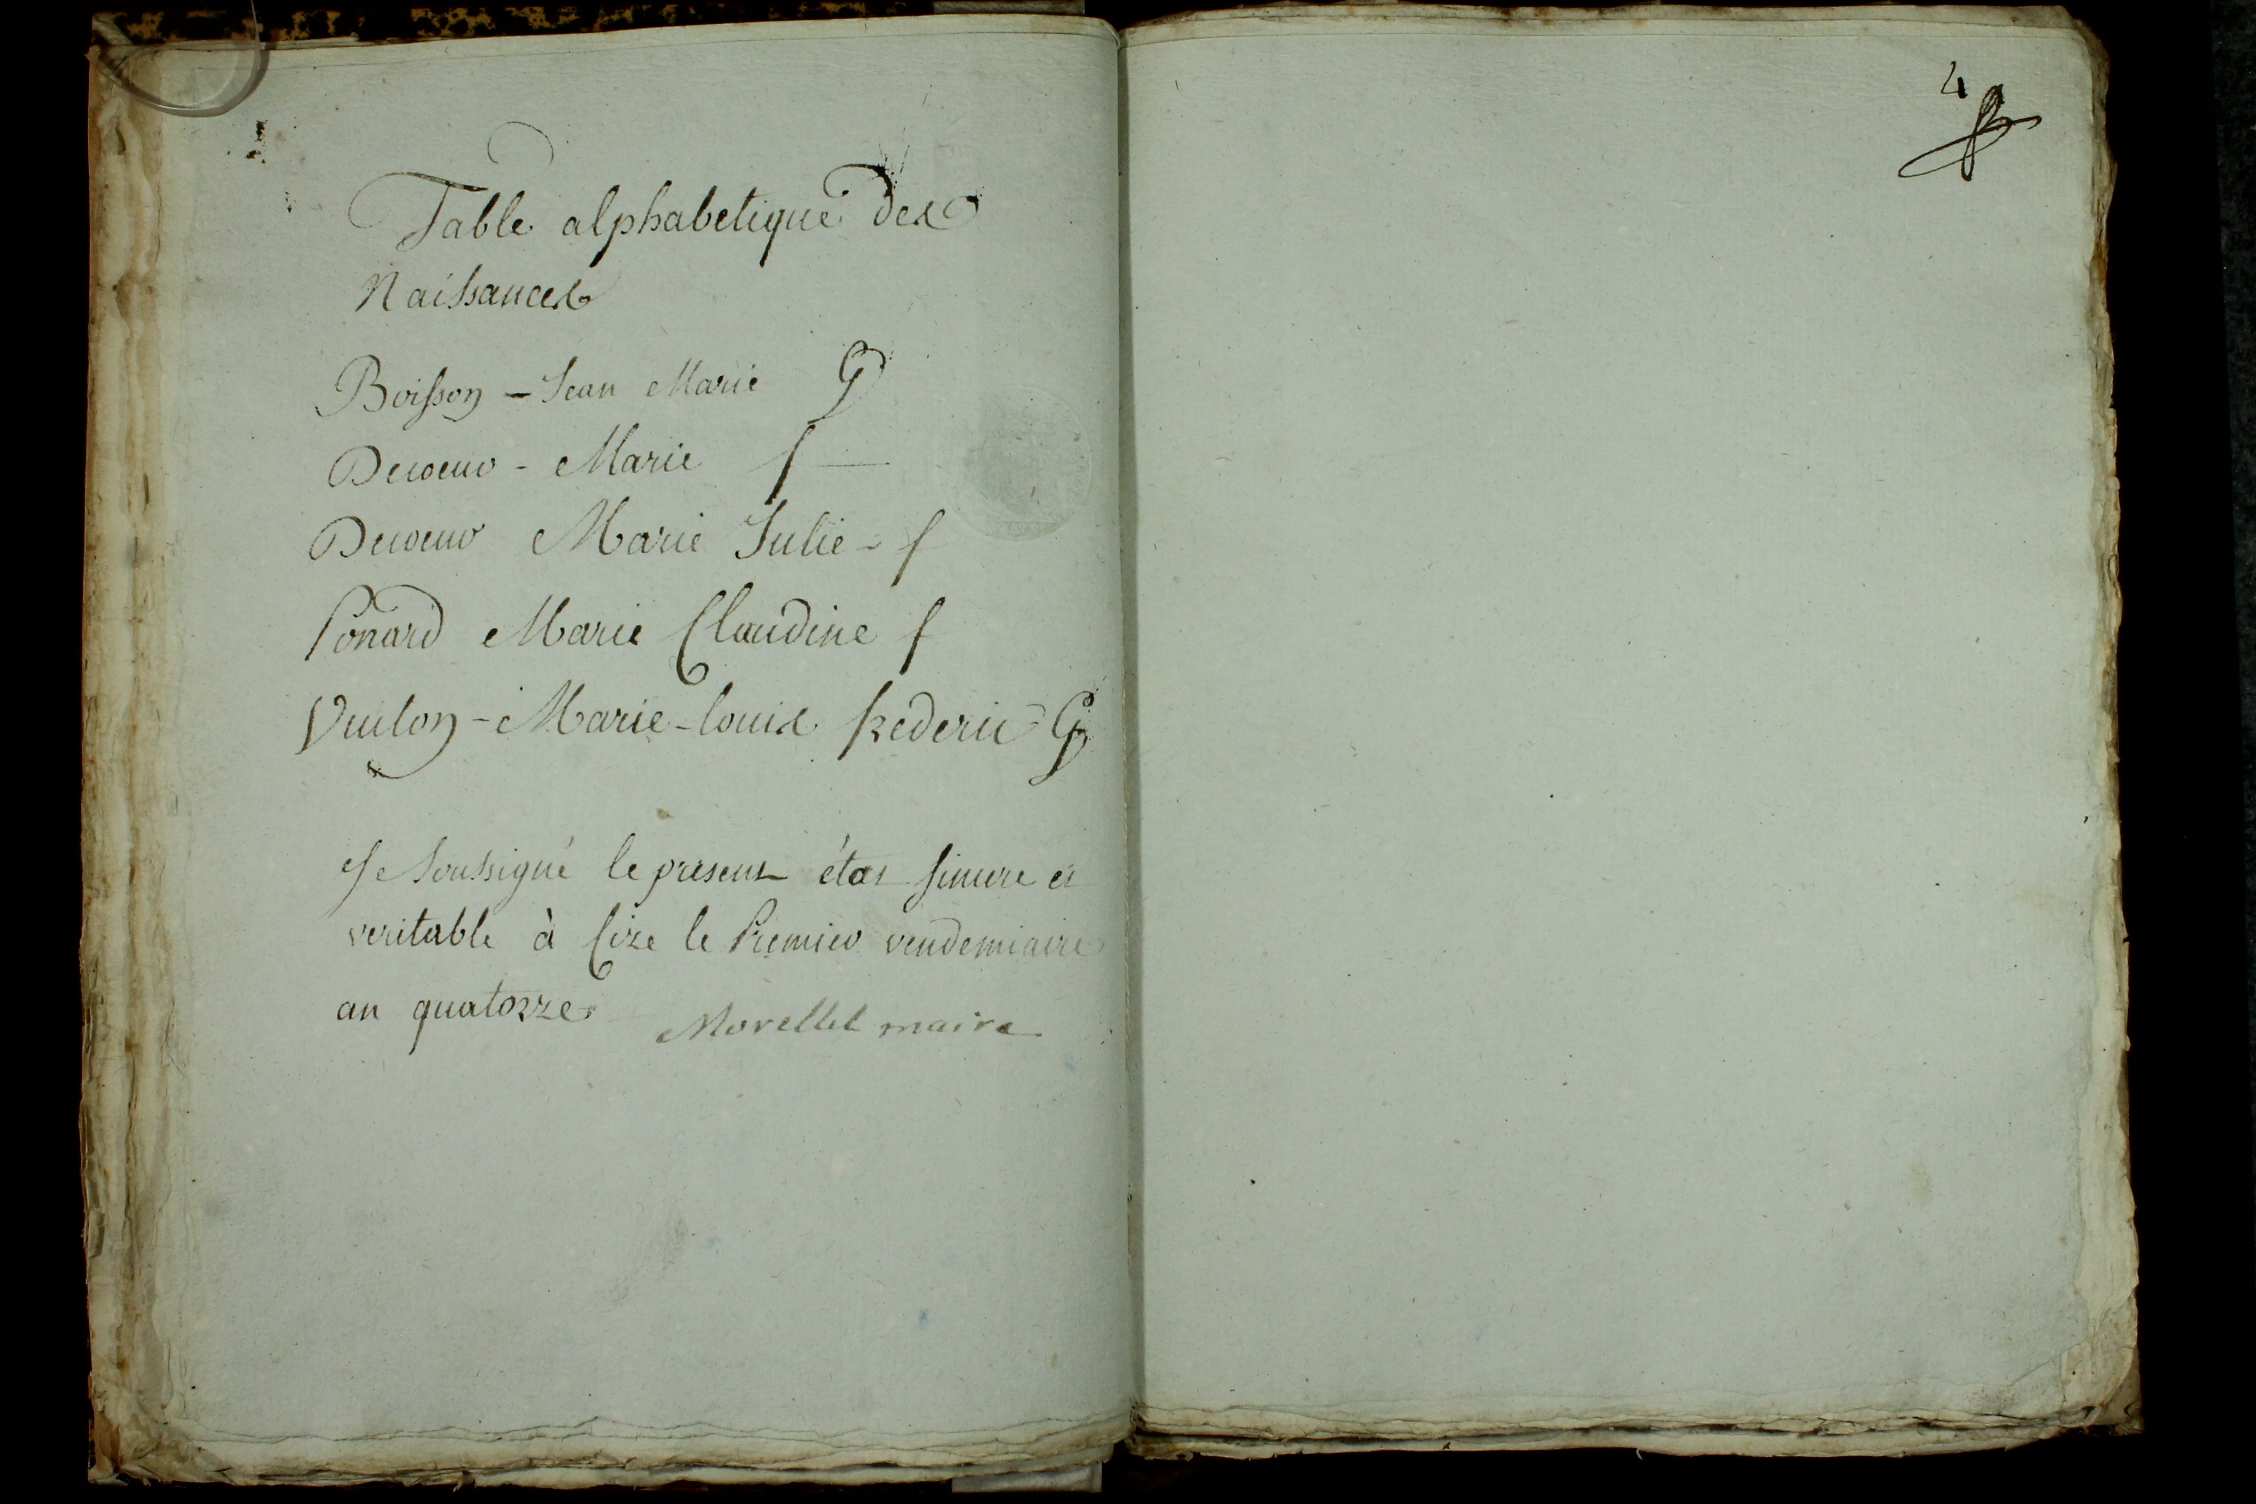 Table alphabetique des
Naissances
Boisson - Jean Marie G
Decoeur - Marie f
Decoeur Marie Julie - f
Ponard Marie Claudine f
Vuilon - Marie - louis frederic G
Je Soussigné le present état sincere et
veritable à Cize le Premier vendemiaire
an quatorze
Morellet maire
4